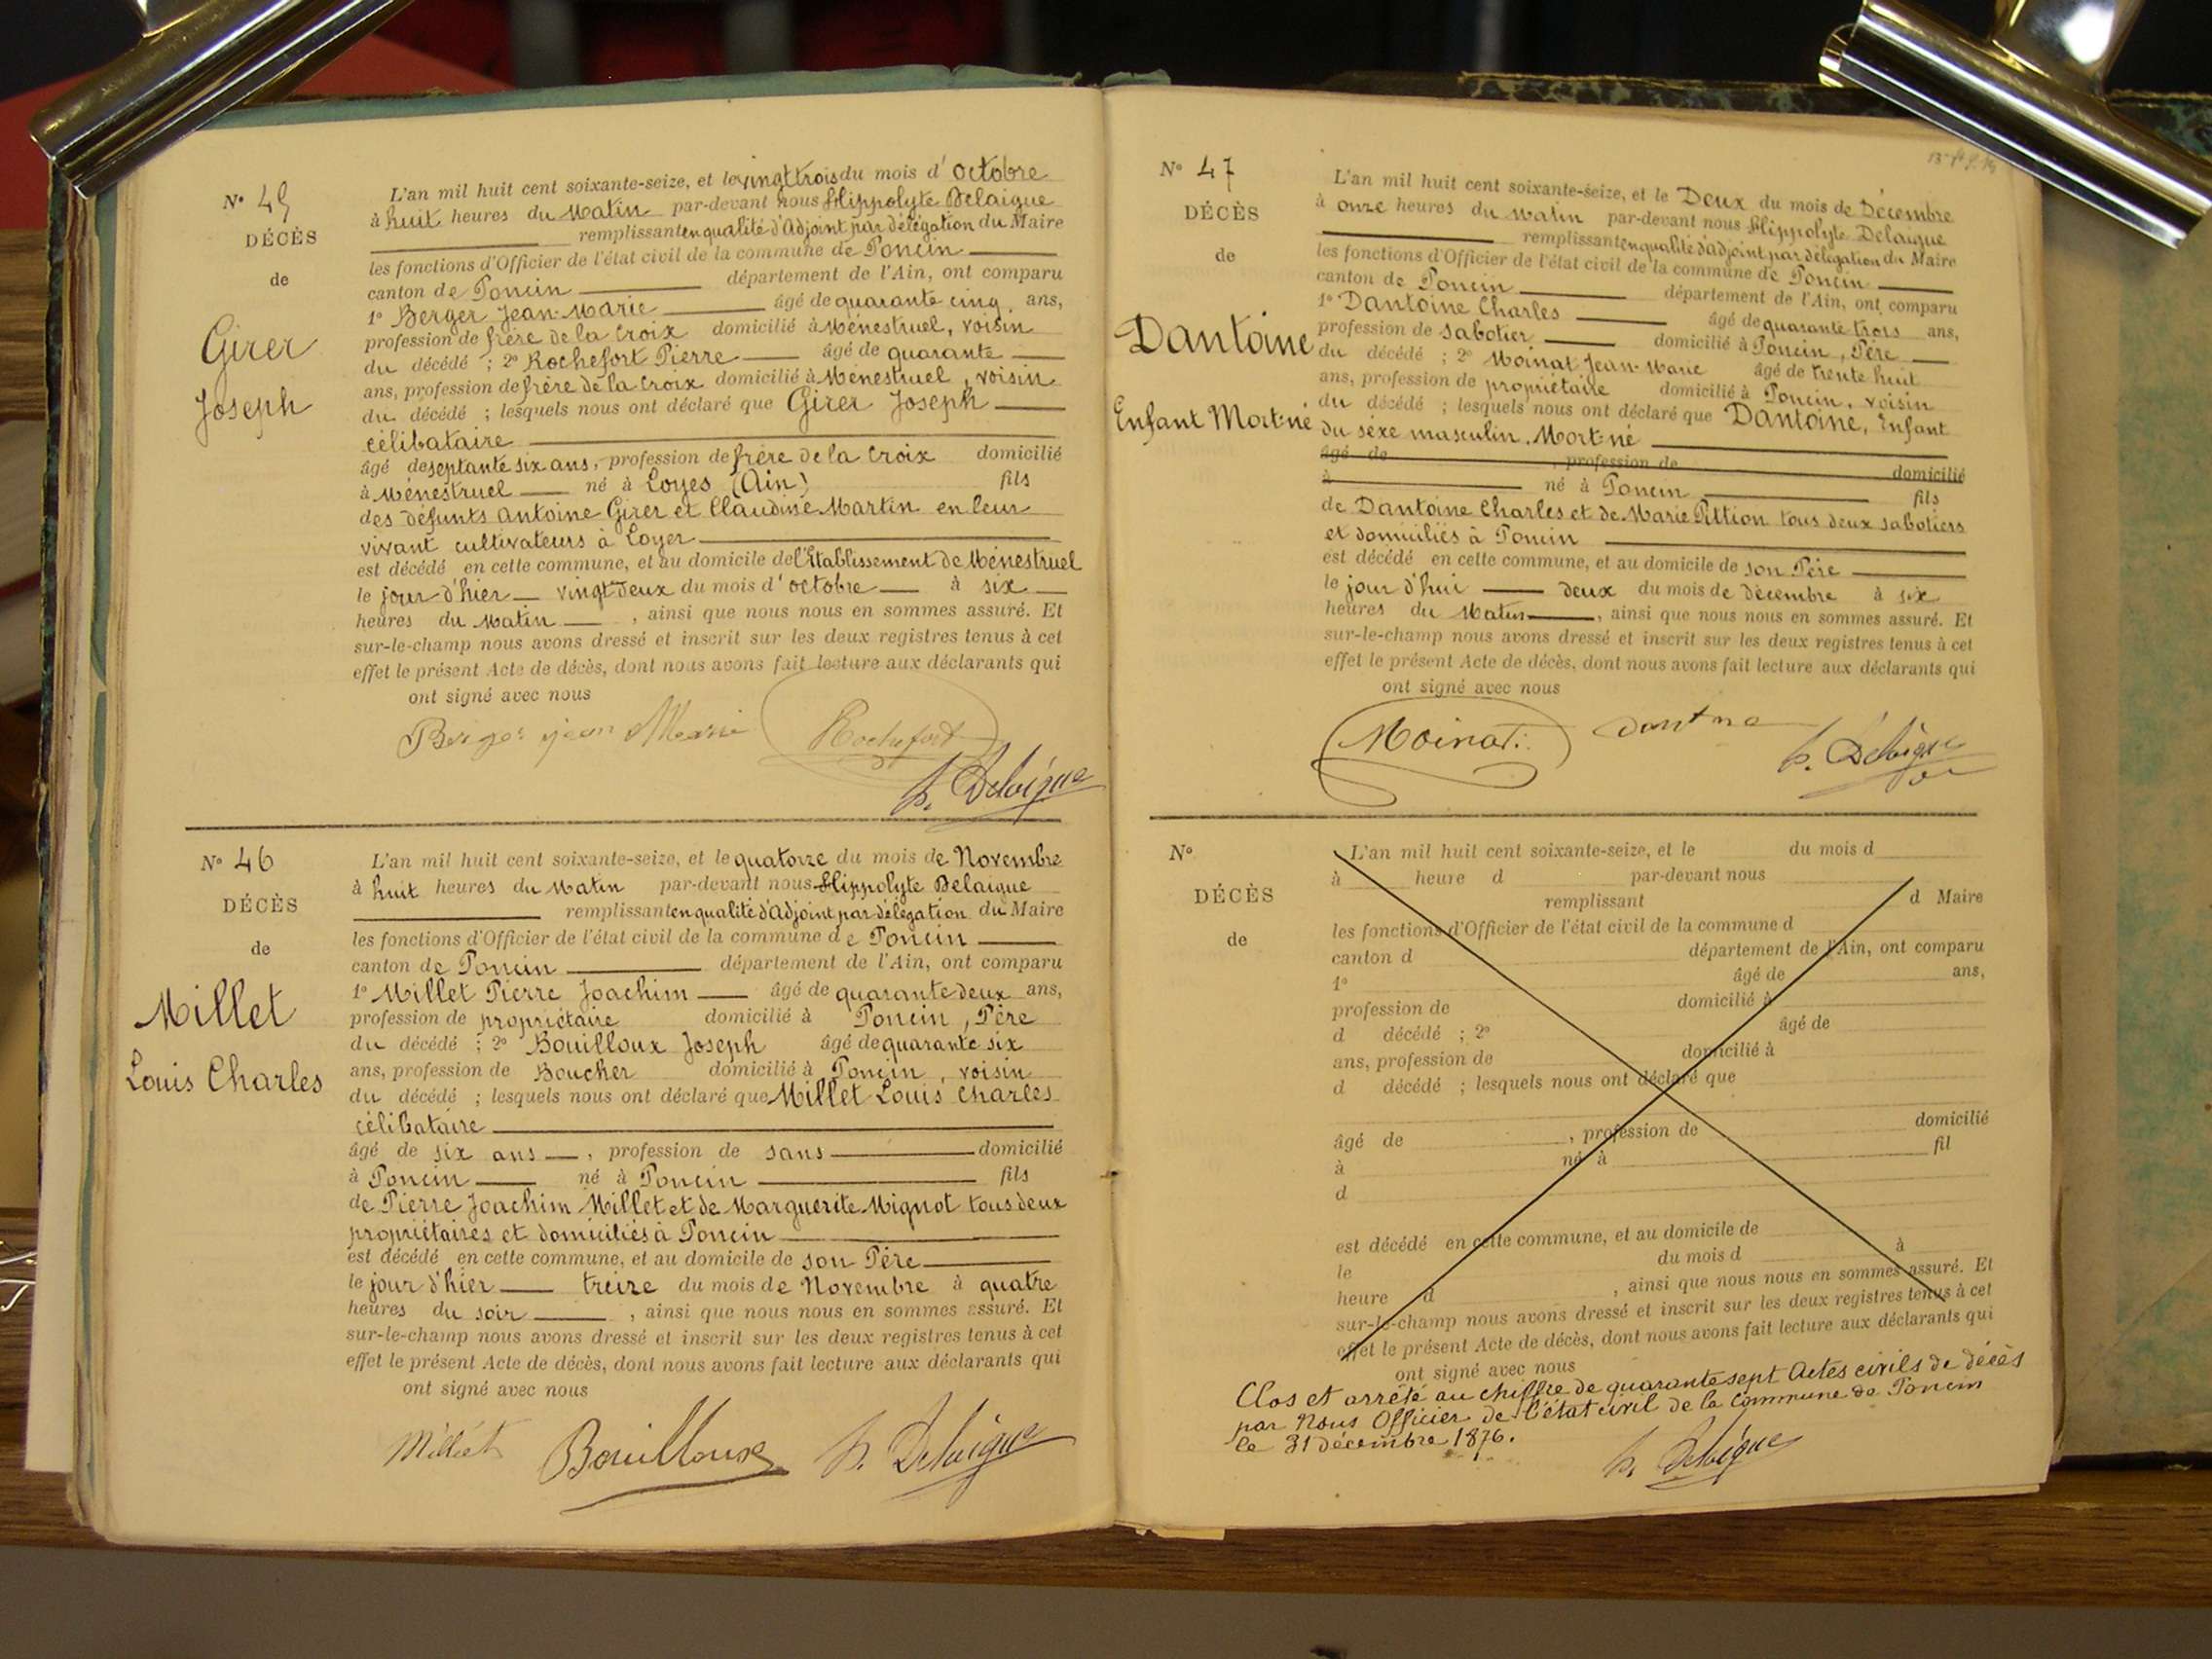 N° 45
DÉCÈS
de
Girer
Joseph
L'an mil huit cent soixante-seize, et le vingt trois du mois d'octobre
à huit heures du Matin par-devant nous Hippolyte Delaigue
remplissant en qualité d'Adjoint par délégation du Maire
les fonctions d'Officier de l'état civil de la commune de Poncin
canton de Poncin département de l'Ain, ont comparu
1° Berger Jean-Marie âgé de quarante cinq ans,
profession de frère de la Croix domicilié à Ménestruel, voisin
du décédé ; 2° Rochefort Pierre âgé de quarante
ans, profession de frère de la Croix domicilié à Ménestruel, voisin
du décédé ; lesquels nous ont déclaré que Girer Joseph
célibataire
âgé de septante six ans, profession de frère de la Croix domicilié
à Ménestruel né à Loyes (Ain) fils
des défunts Antoine Girer et Claudine Martin en leur
vivant cultivateurs à Loyer
est décédé en cette commune, et au domicile de l'Etablissement de Ménestruel
le jour d'hier vingt Deux du mois d'octobre à six
heures du Matin , ainsi que nous nous en sommes assuré. Et
sur-le-champ nous avons dressé et inscrit sur les deux registres tenus à cet
effet le présent Acte de décès, dont nous avons fait lecture aux déclarants qui
ont signé avec nous
Berger jean Marie Rochefort
h. Delaigue
N° 46
DÉCÈS
de
Millet
Louis Charles
L'an mil huit cent soixante-seize, et le quatorze du mois de Novembre
à huit heures du Matin par-devant nous Hippolyte Delaigue
remplissant en qualité d'Adjoint par délégation du Maire
les fonctions d'Officier de l'état civil de la commune de Poncin
canton de Poncin département de l'Ain, ont comparu
1° Millet Pierre Joachim âgé de quarante deux ans,
profession de propriétaire domicilié à Poncin, Père
du décédé ; 2° Bouilloux Joseph âgé de quarante six
ans, profession de Boucher domicilié à Poncin, voisin
du décédé ; lesquels nous ont déclaré que Millet Louis Charles
célibataire
âgé de six ans , profession de sans domicilié
à Poncin né à Poncin fils
de Pierre Joachim Millet et de Marguerite Mignot tous deux
propriétaires et domiciliés à Poncin
est décédé en cette commune, et au domicile de son Père
le jour d'hier treize du mois de Novembre à quatre
heures du soir , ainsi que nous nous en sommes assuré. Et
sur-le-champ nous avons dressé et inscrit sur les deux registres tenus à cet
effet le présent Acte de décès, dont nous avons fait lecture aux déclarants qui
ont signé avec nous
Millet Bouilloux h. Delaigue
N° 47
DÉCÈS
de
Dantoine
Enfant Mort-né
L'an mil huit cent soixante-seize, et le Deux du mois de Décembre
à onze heures du Matin par-devant nous Hippolyte Delaigue
remplissant en qualité d'adjoint par délégation du Maire
les fonctions d'Officier de l'état civil de la commune de Poncin
canton de Poncin département de l'Ain, ont comparu
1° Dantoine Charles âgé de quarante trois ans,
profession de Sabotier domicilié à Poncin, Père
du décédé ; 2° Moinat Jean-Marie âgé de trente huit
ans, profession de propriétaire domicilié à Poncin, voisin
du décédé ; lesquels nous ont déclaré que Dantoine, Enfant
du sexe masculin. Mort-né
âgé de , profession de domicilié
à né à Poncin fils
de Dantoine Charles et de Marie Pittion tous deux sabotiers
et domiciliés à Poncin
est décédé en cette commune, et au domicile de son Père
le jour d'hui deux du mois de décembre à six
heures du Matin , ainsi que nous nous en sommes assuré. Et
sur-le-champ nous avons dressé et inscrit sur les deux registres tenus à cet
effet le présent Acte de décès, dont nous avons fait lecture aux déclarants qui
ont signé avec nous
Moinat h. Delaigue
N°
DÉCÈS
de
L'an mil huit cent soixante-seize, et le du mois d
à heure d par-devant nous
remplissant d Maire
les fonctions d'Officier de l'état civil de la commune d
canton d département de l'Ain, ont comparu
1° âgé de ans,
profession de domicilié à
d décédé ; 2° âgé de
ans, profession de domicilié à
d décédé ; lesquels nous ont déclaré que
âgé de , profession de domicilié
à né à fil
d
est décédé en cette commune, et au domicile de
le du mois d à
heure d , ainsi que nous nous en sommes assuré. Et
sur-le-champ nous avons dressé et inscrit sur les deux registres tenus à cet
effet le présent Acte de décès, dont nous avons fait lecture aux déclarants qui
ont signé avec nous
Clos et arrêté au chiffre de quarante sept Actes civils de décès
par Nous Officier de l'état civil de la Commune de Poncin
le 31 décembre 1876.
h. Delaigue